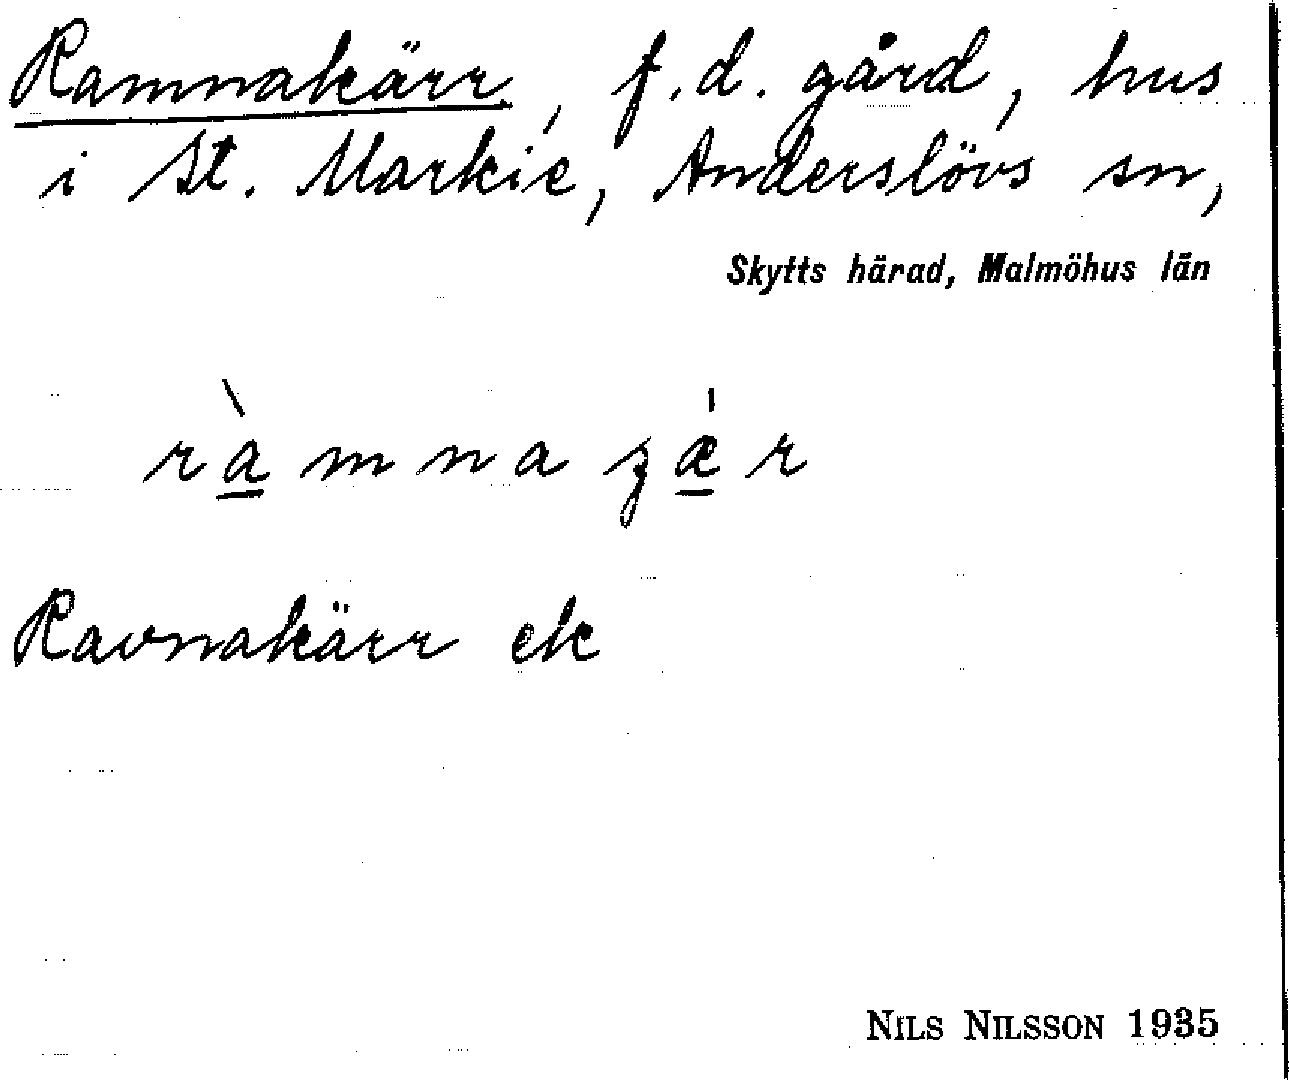 Ramnakärr, f.d. gård, hus
i St. Markie, Anderslövs sn,
Skytts härad, Malmöhus län
ràmnaʒǽr
Ravnakärr ek
NILS NILSSON 1935